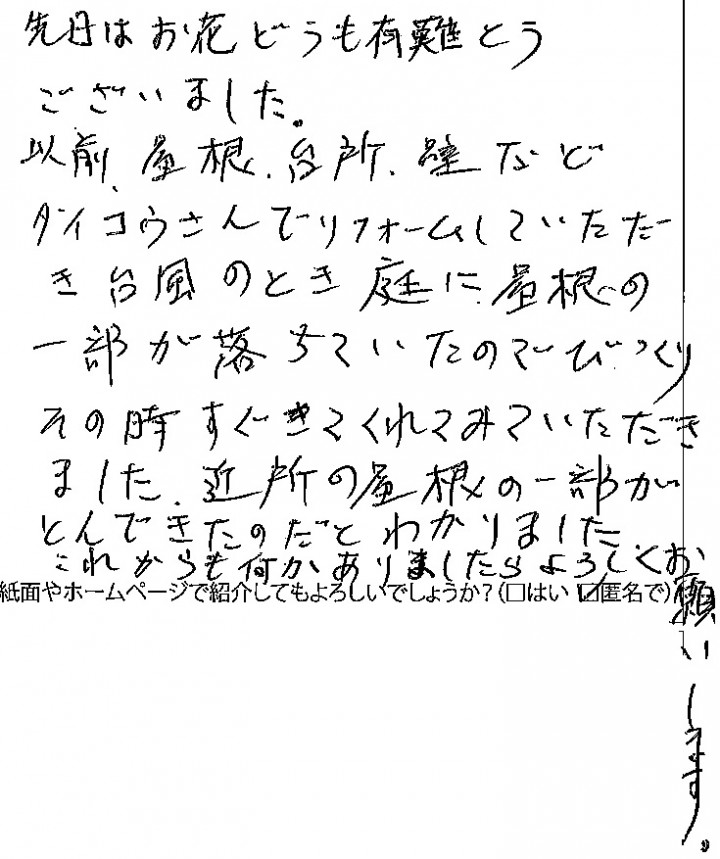 先日はお花どうも有難とう
ございました。
以前、屋根、台所、壁など
ダイコウさんでリフォームしていただ
き台風のとき庭に屋根の
一部が落ちていたのでびっくり
その時すぐきてくれてみていただき
ました、近所の屋根の一部が
とんできたのだとわかりました
これからも何かありましたらよろしくお
願いします。
紙面やホームページで紹介してもよろしいでしょうか？(□はい ☑匿名で)